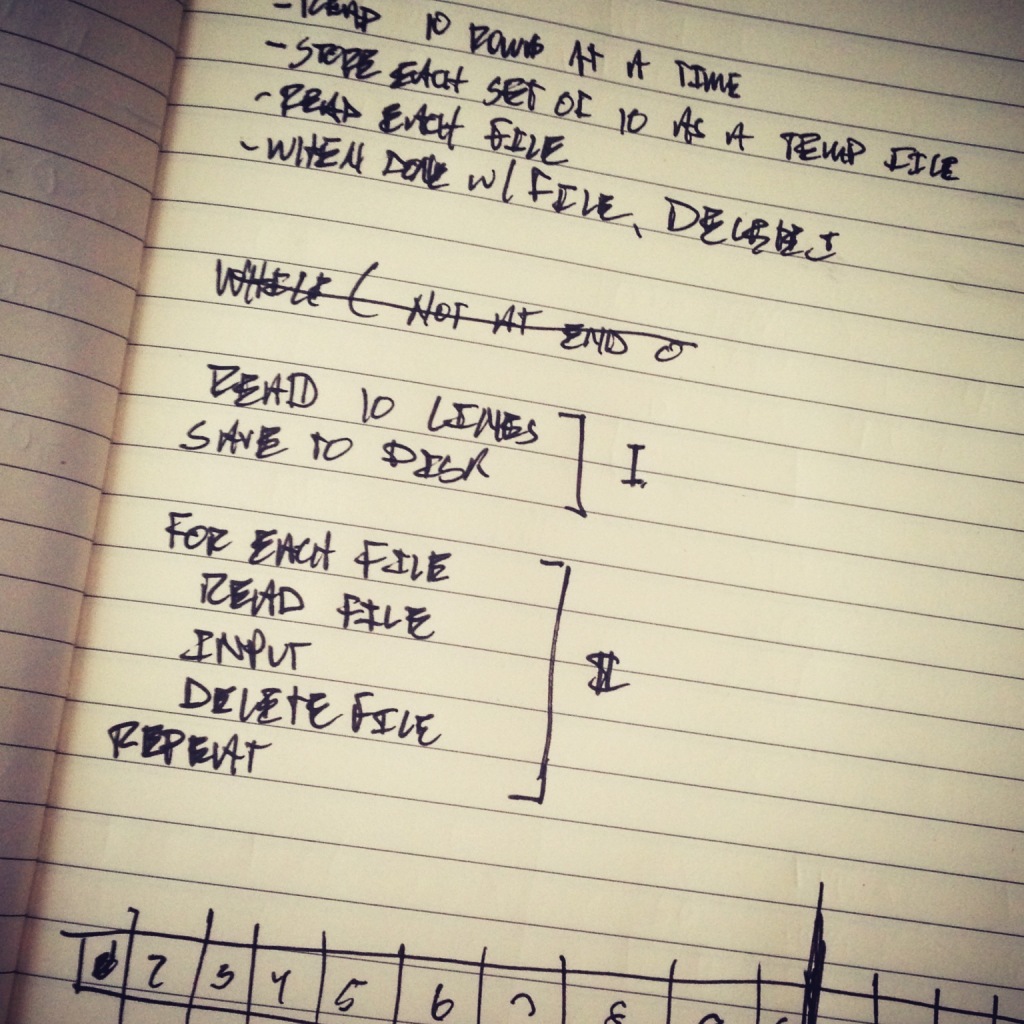 - READ 10 ROWS AT A TIME
- STORE EACH SET OF 10 AS A TEMP FILE
- READ EACH FILE
- WHEN DONE W/ FILE, DELETE IT
WHILE ( NOT AT END O
READ 10 LINES
SAVE TO DISK
I
FOR EACH FILE
READ FILE
INPUT
DELETE FILE
REPEAT
II
2 3 4 5 6 7 8 9